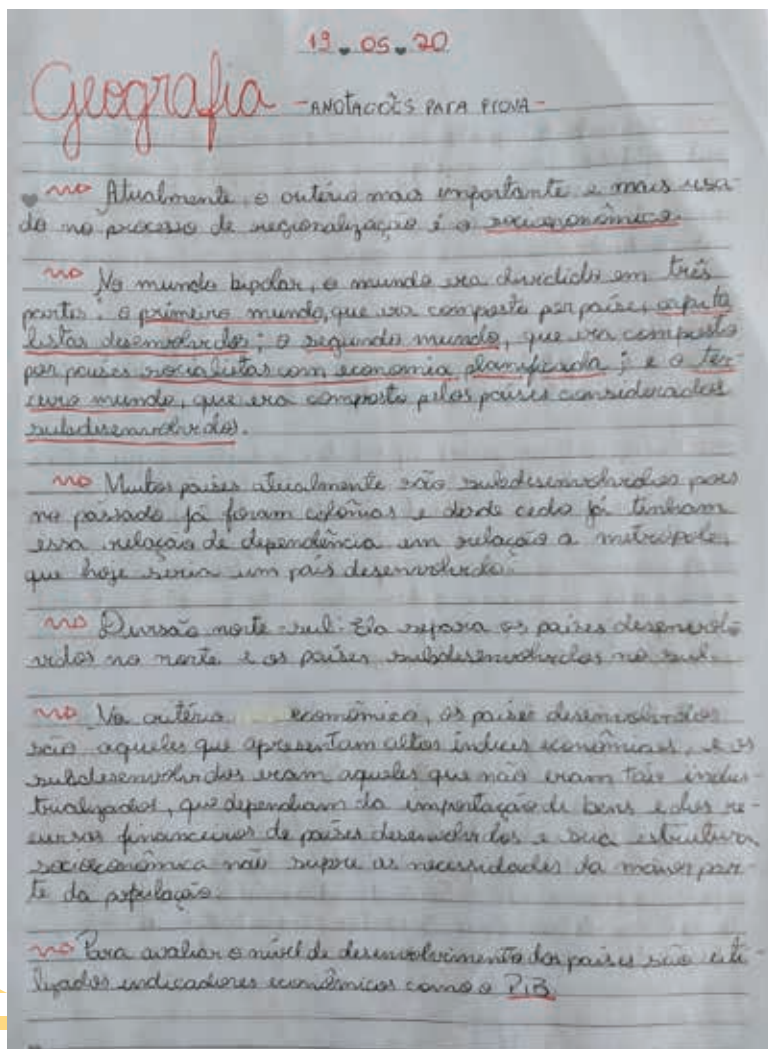 19.05.20
Geografia - ANOTAÇÕES PARA PROVA -
Atualmente, o critério mais importante e mais usa-
do no processo de regionalização é o socioeconômico.
No mundo bipolar, o mundo era dividido em três
partes: o primeiro mundo, que era composto por países capita
listas desenvolvidos; o segundo mundo, que era composto
por países socialistas com economia planificada; e o ter-
ceiro mundo, que era composto pelos países considerados
subdesenvolvidos.
Muitos países atualmente são subdesenvolvidos pois
no passado já foram colônias e desde cedo já tinham
essa relação de dependência em relação a metrópole,
que hoje seria um país desenvolvido.
Divisão norte-sul: Ela separa os países desenvol
vidos no norte e os países subdesenvolvidos no sul.
No critério econômico, os países desenvolvidos
são aqueles que apresentam altos índices econômicos, e os
subdesenvolvidos eram aqueles que não eram tão indus-
trializados, que dependiam da importação de bens e dos re-
cursos financeiros de países desenvolvidos e sua estrutura
socioeconômica não supre as necessidades da maior par-
te da população.
Para avaliar o nível de desenvolvimento dos países são uti-
lizados indicadores econômicos como o PIB